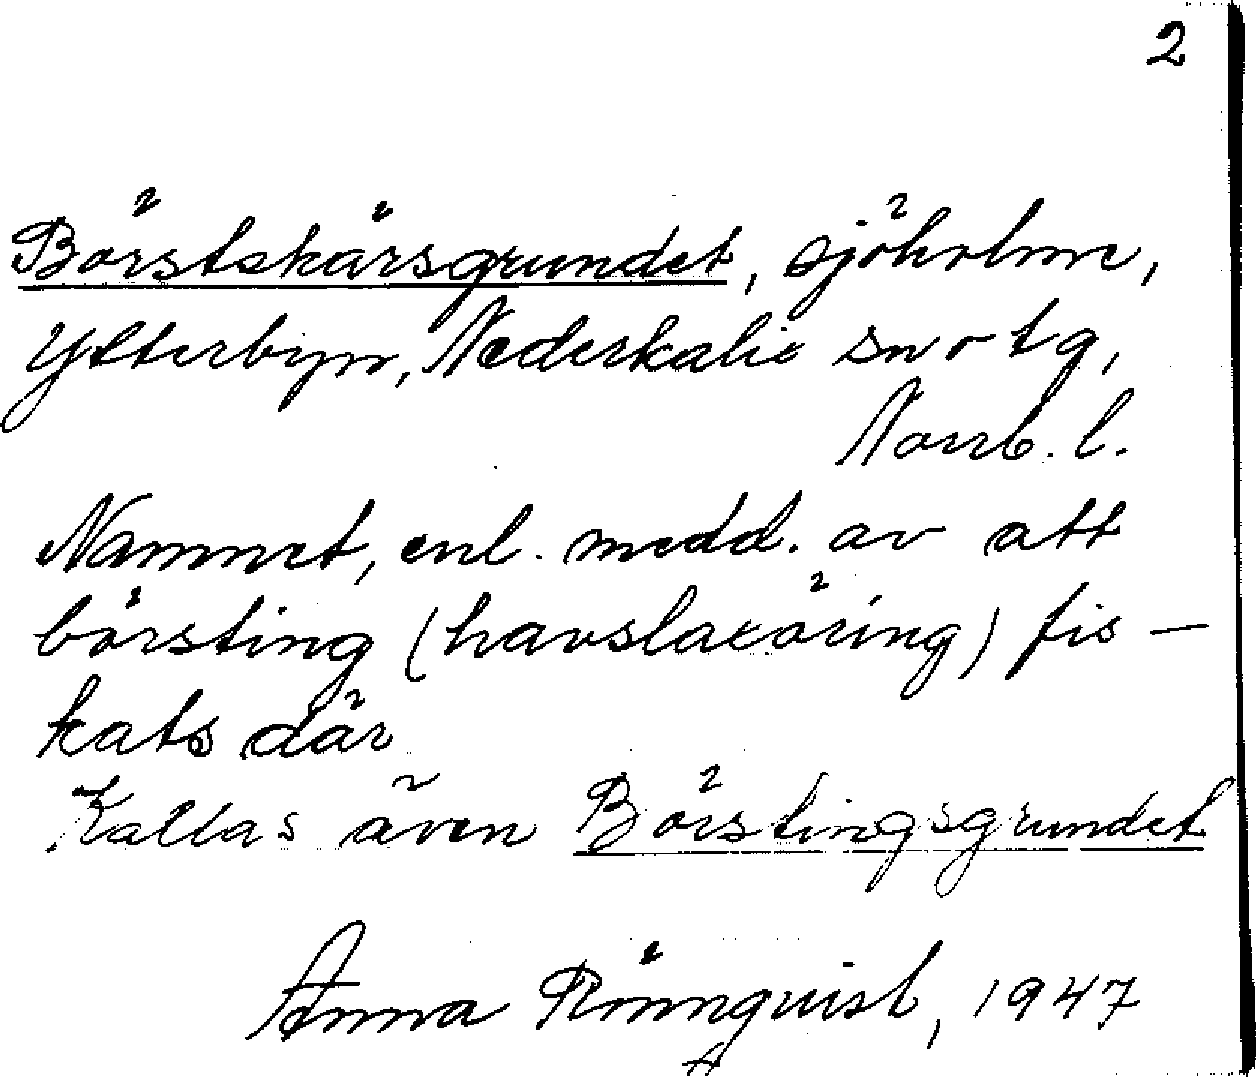 2
Börstskärsgrundet, sjöholme,
Ytterbyn, Nederkalix sn o tg,
Norrb. l.
Namnet, enl. medd. av att
börsting (havslaxöring) fis-
kats där
Kallas även Börstingsgrundet
Anna Rönnquist, 1947